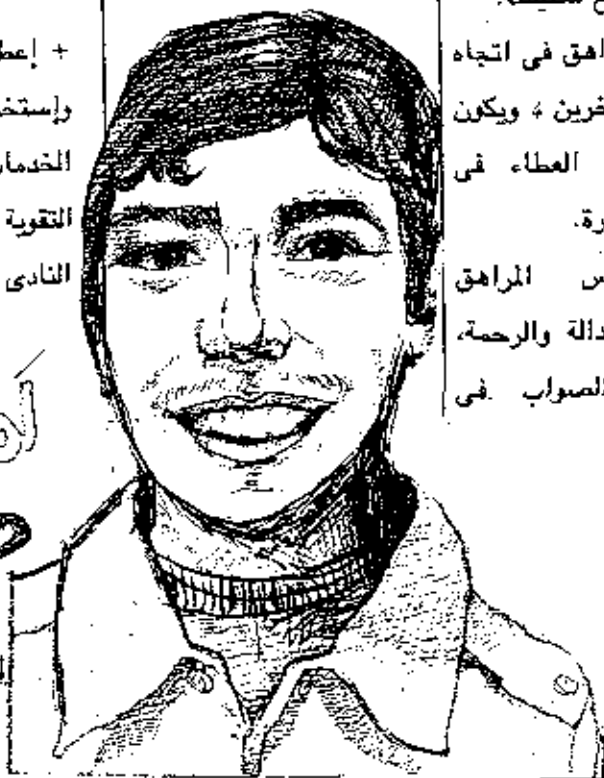 اهق فى اتجاه
خرين ، ويكون
العطاء فى
رة.
س المراهق
دالة والرحمة،
الصواب فى
+ إعط
وإستخد
الخدمات
التقوية
النادى